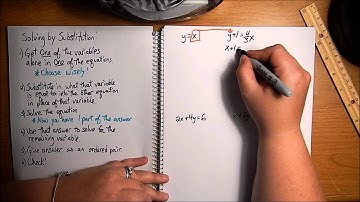 Solving by Substitution:
1) Get One of the variables
alone in One of the equations.
*Choose wisely!
2) Substitute in what that variable
is equal to into the other equation
in place of that variable.
3) Solve the equation.
*Now you have 1 part of the answer
4) Use that answer to solve for the
remaining variable.
5) Give answer as an ordered pair.
6) Check!
y=x y+1=4/5x
x+1
2x+4y=6